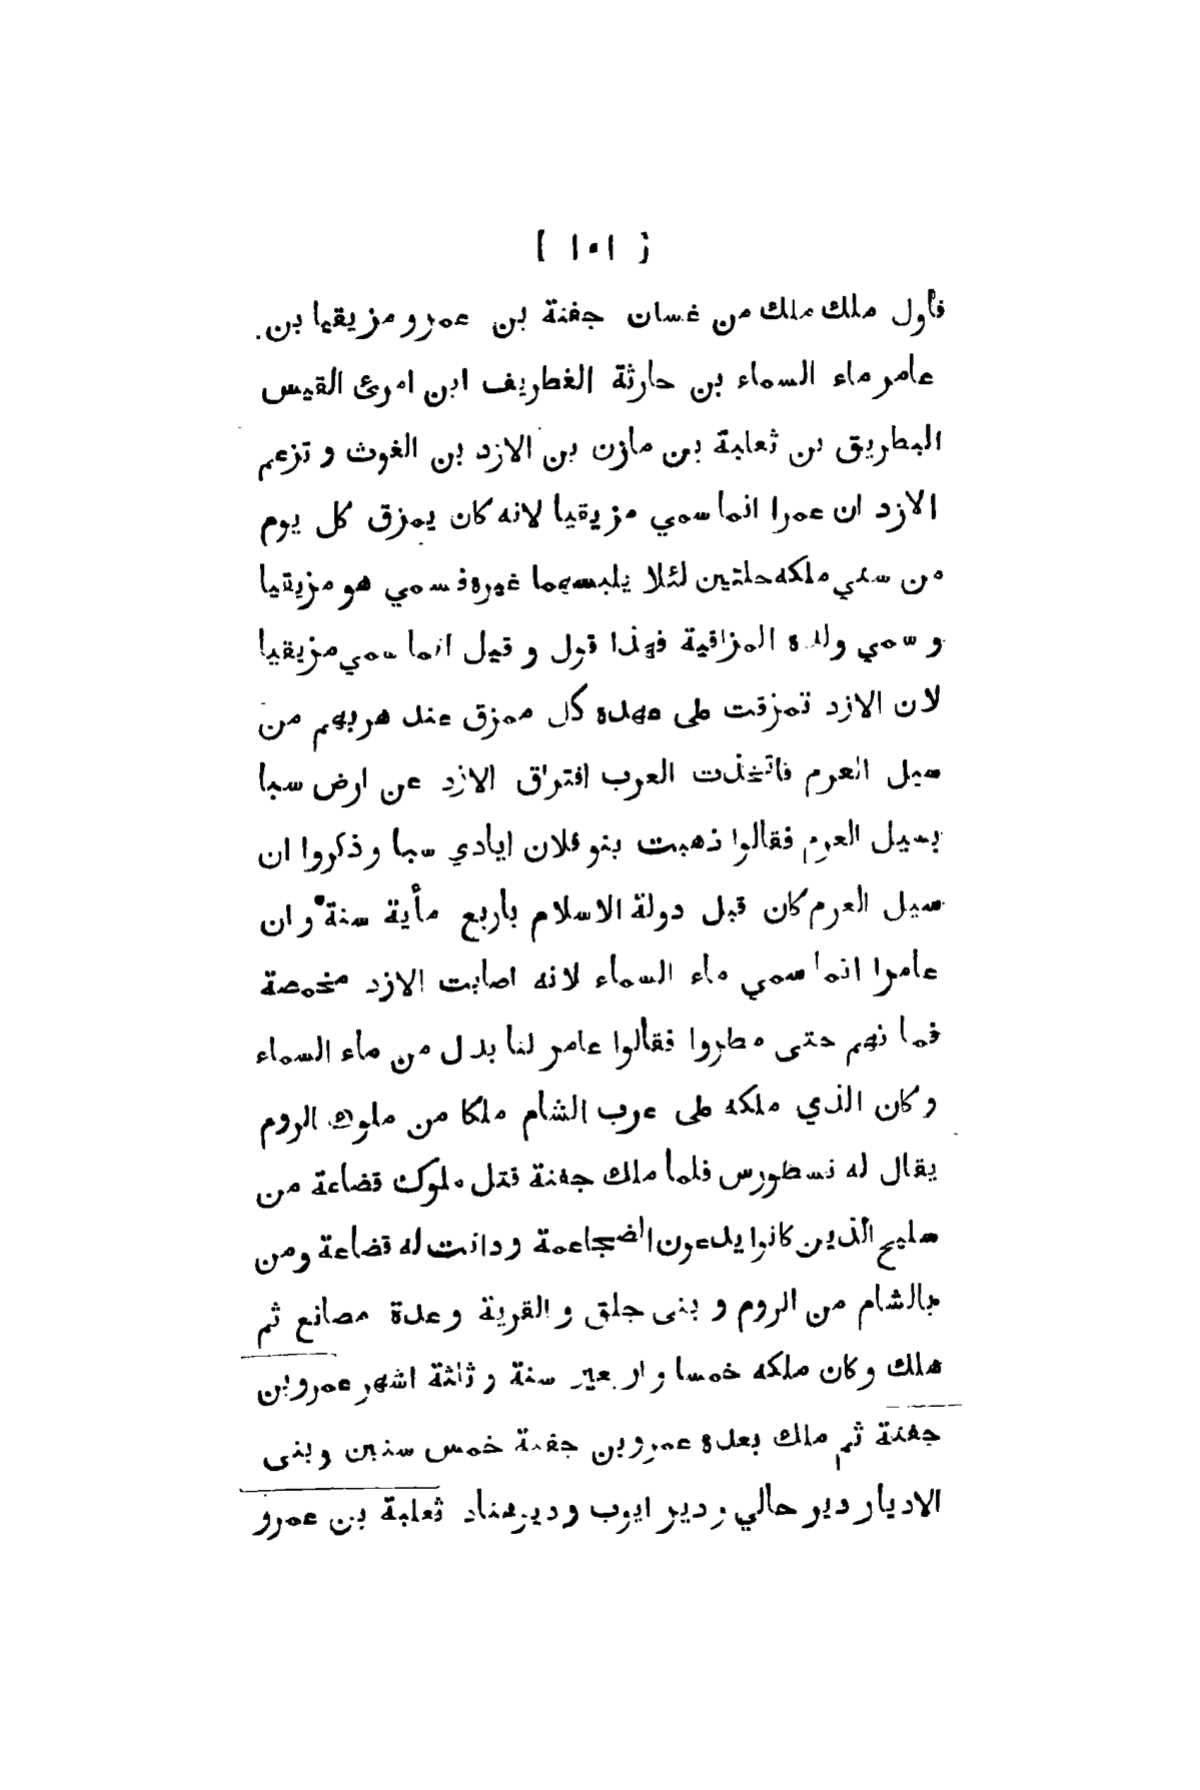 [ ١٠١ ]
فأول ملك ملك من غسان جفنة بن عمرو مزيقيا بن
عامر ماء السماء بن حارثة الغطريف ابن امرئ القيس
البطريق بن ثعلبة بن مازن بن الازد بن الغوث و تزعم
الازد ان عمرا انما سمي مزيقيا لانه كان يمزق كل يوم
من سني ملكه حلتين لئلا يلبسهما غيره فسمي هو مزيقيا
و سمي ولده المزاقية فهذا قول و قيل انما سمي مزيقيا
لان الازد تمزقت على عهده كل ممزق عند هربهم من
سيل العرم فاتخذت العرب افتراق الازد عن ارض سبا
بسيل العرم فقالوا ذهبت بنو فلان ايادي سبا و ذكروا ان
سيل العرم كان قبل دولة الاسلام بأربع مأية سنة و ان
عامرا انما سمي ماء السماء لانه اصابت الازد مخمصة
فمانهم حتى مطروا فقالوا عامر لنا بدل من ماء السماء
و كان الذي ملكه على عرب الشام ملكا من ملوك الروم
يقال له نسطورس فلما ملك جفنة قتل ملوك قضاعة من
سليح الذين كانوا يدعون الضجاعمة و دانت له قضاعة و من
بالشام من الروم و بنى جلق و القرية و عدة مصانع ثم
هلك و كان ملكه خمسا و اربعين سنة و ثلثة اشهر عمرو بن
جفنة ثم ملك بعده عمرو بن جفنة خمس سنين و بنى
الاديار دير حالي و دير ايوب و دير هناد ثعلبة بن عمرو